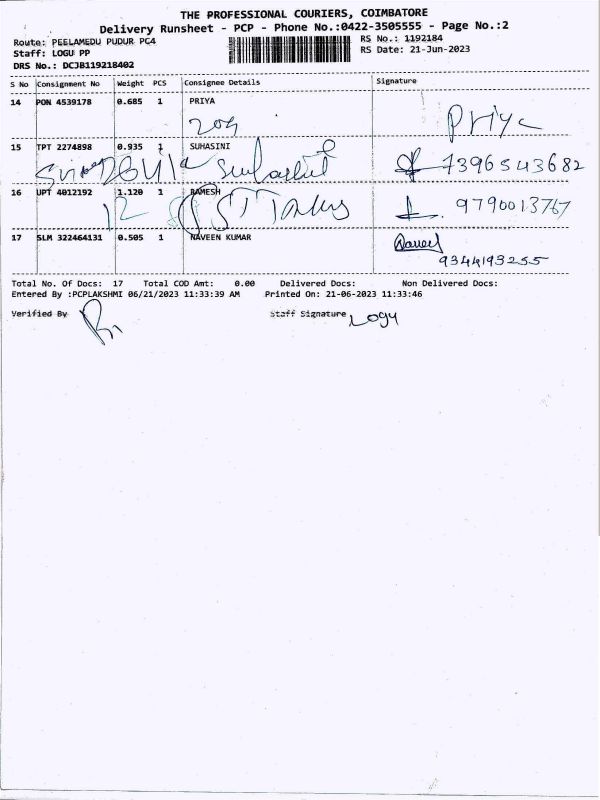 THE PROFESSIONAL COURIERS, COIMBATORE
Delivery Runsheet - PCP - Phone No.:0422-3505555 - Page No.:2
Route: PEELAMEDU PUDUR PC4
RS No.: 1192184
Staff: LOGU PP
RS Date: 21-Jun-2023
DRS No.: DCJB119218402
S No Consignment No Weight PCS Consignee Details Signature
14 PON 4539178 0.685 1 PRIYA
Priya
15 TPT 2274898 0.935 1 SUHASINI
7396543682
16 UPT 4012192 1.120 1 RAMESH
12
9790013767
17 SLM 322464131 0.505 1 NAVEEN KUMAR
Naveen
9344193255
Total No. Of Docs: 17 Total COD Amt: 0.00 Delivered Docs: Non Delivered Docs:
Entered By :PCPLAKSHMI 06/21/2023 11:33:39 AM Printed On: 21-06-2023 11:33:46
Verified By
Staff Signature Logu